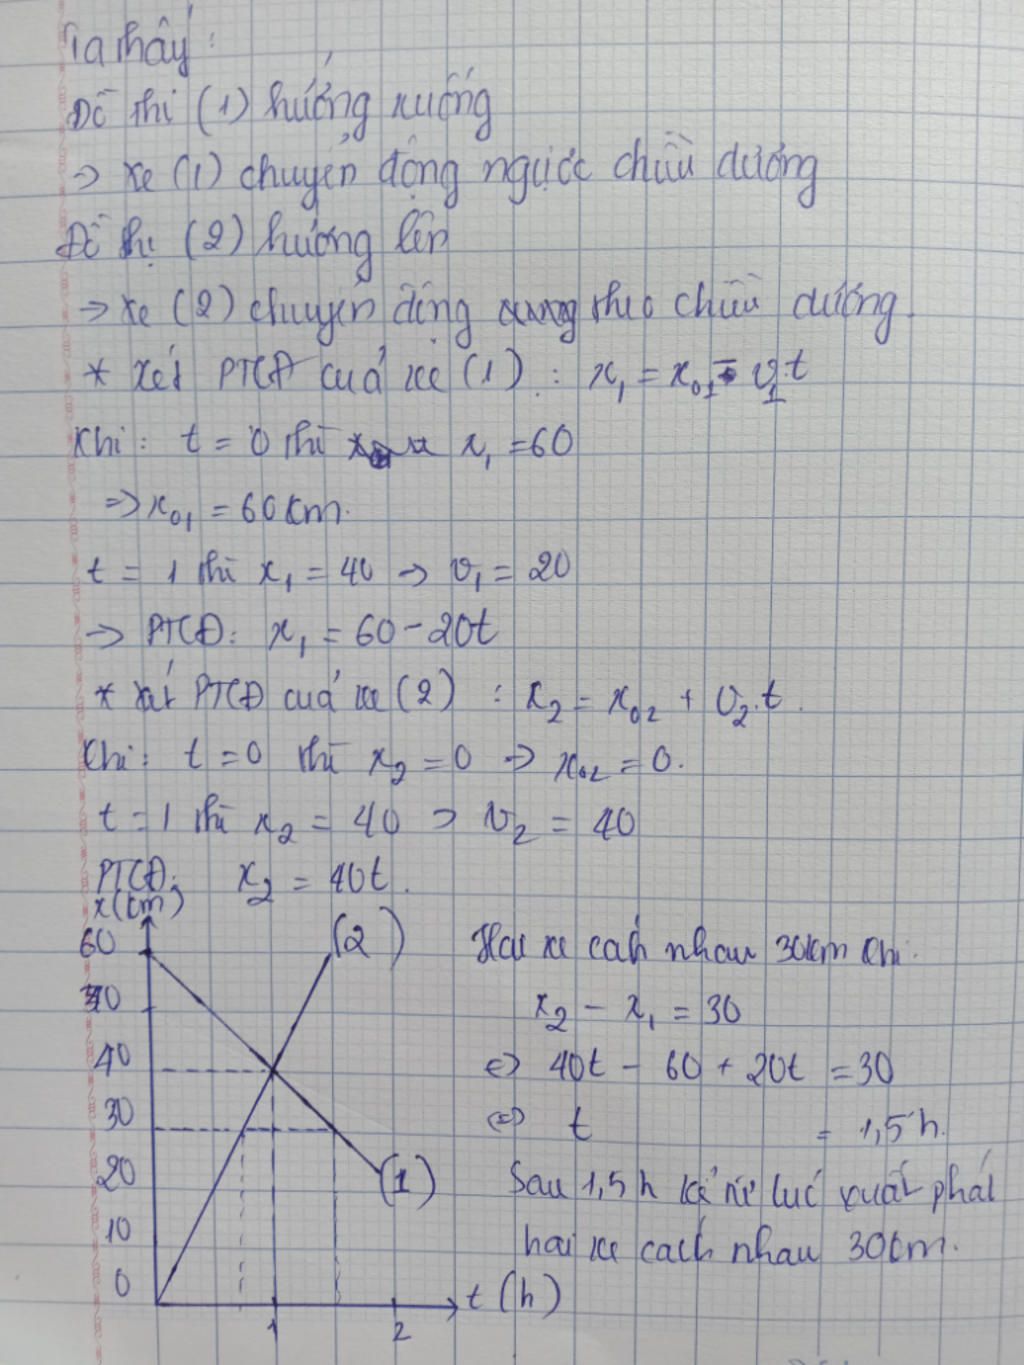 Ta thấy :
Đồ thị (1) hướng xuống
→ xe (1) chuyển động ngược chiều dương
Đồ thị (2) hướng lên
→ xe (2) chuyển động theo chiều dương.
* Xét PTCĐ của xe (1) : x₁ = x₀₁ - v₁.t
Khi: t = 0 thì x₁ = 60
=> x₀₁ = 60 km.
t = 1 thì x₁ = 40 → v₁ = 20
→ PTCĐ: x₁ = 60 - 20t
* xét PTCĐ của xe (2) : x₂ = x₀₂ + v₂.t.
Khi: t = 0 thì x₂ = 0 → x₀₂ = 0.
t = 1 thì x₂ = 40 → v₂ = 40
PTCĐ: x₂ = 40t.
x(km)
60
40
30
20
10
0
(2)
(1)
1
2
t (h)
Hai xe cách nhau 30km khi:
x₂ - x₁ = 30
<=> 40t - 60 + 20t = 30
<=> t = 1,5 h.
Sau 1,5 h kể từ lúc xuất phát
hai xe cách nhau 30km.